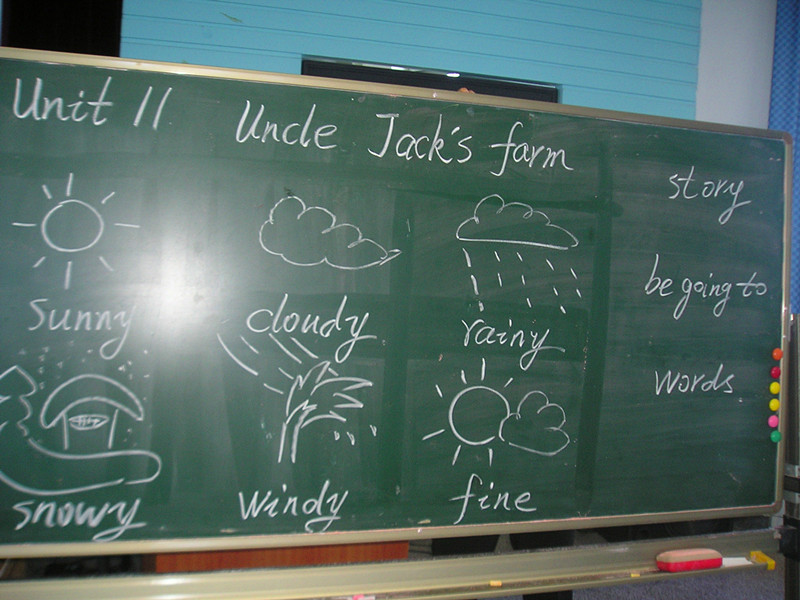 Unit 11
Uncle Jack's farm
story
be going to
words
sunny
cloudy
rainy
snowy
windy
fine